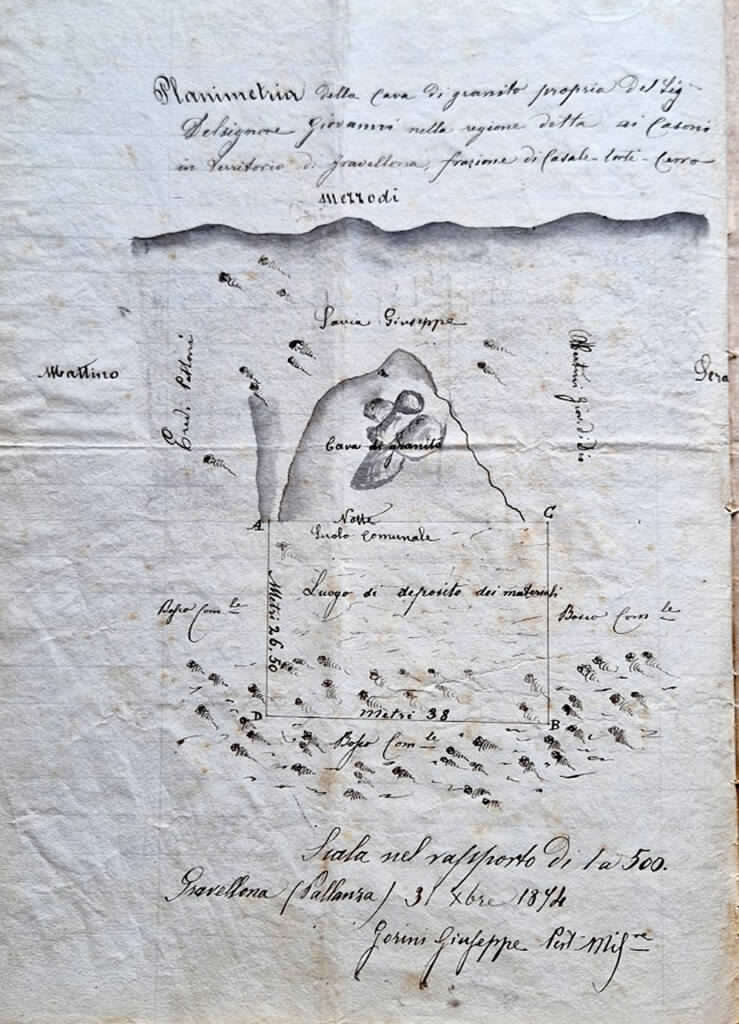 Planimetria della Cava di granito propria del Sig.
Delsignore Giovanni nella regione detta ai Casoni
in territorio di Gravellona, frazione di Casale-Corte-Cerro
Mezzodi
Savia Giuseppe
Mattino
Ered. Pattoni
Giov. di Dio
Sera
Cava di granito
A
Notte
C
Suolo Comunale
Luogo di deposito dei materiali
Metri 26,50
Bosco Com.le
Bosco Com.le
D
Metri 38
B
Bosco Com.le
Scala nel rapporto di 1 a 500.
Gravellona (Pallanza) 31 Xbre 1874
Gorini Giuseppe Perit. Misre